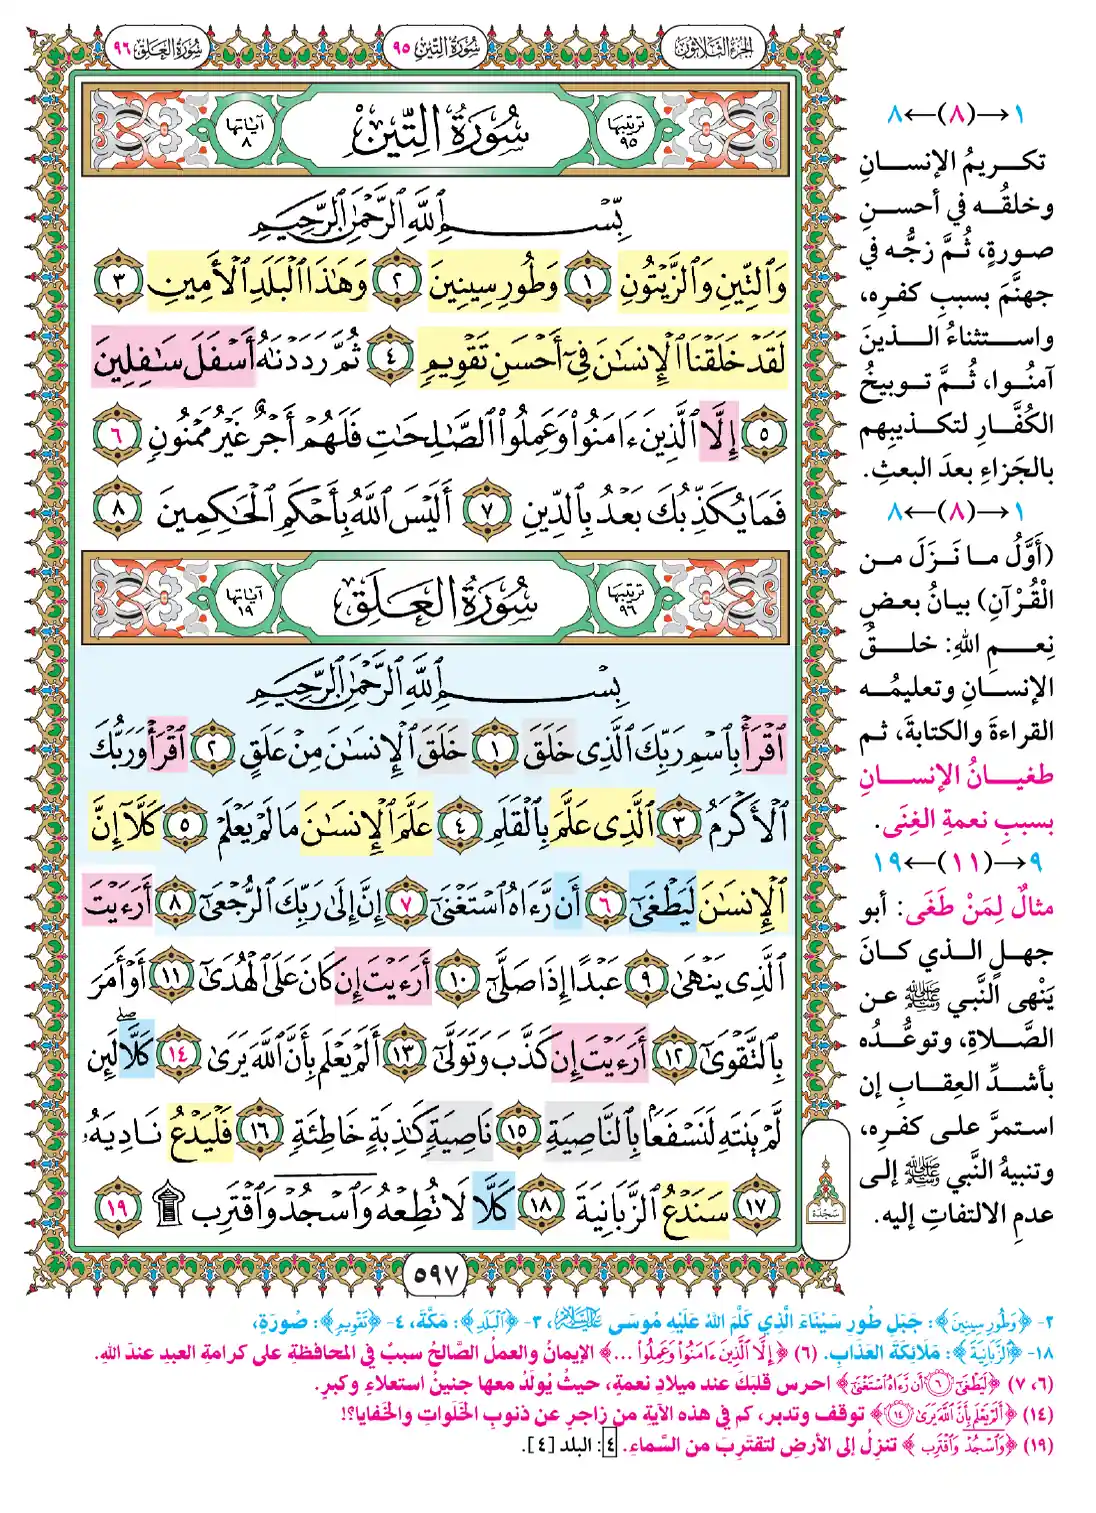 الجزء الثلاثون
سورة التين ٩٥
سورة العلق ٩٦
ترتيبها ٩٥
سُورَةُ التِّينِ
آياتها ٨
بِسْمِ ٱللَّهِ ٱلرَّحْمَٰنِ ٱلرَّحِيمِ
وَٱلتِّينِ وَٱلزَّيْتُونِ ١ وَطُورِ سِينِينَ ٢ وَهَٰذَا ٱلْبَلَدِ ٱلْأَمِينِ ٣
لَقَدْ خَلَقْنَا ٱلْإِنسَٰنَ فِىٓ أَحْسَنِ تَقْوِيمٍ ٤ ثُمَّ رَدَدْنَٰهُ أَسْفَلَ سَٰفِلِينَ
٥ إِلَّا ٱلَّذِينَ ءَامَنُوا۟ وَعَمِلُوا۟ ٱلصَّٰلِحَٰتِ فَلَهُمْ أَجْرٌ غَيْرُ مَمْنُونٍ ٦
فَمَا يُكَذِّبُكَ بَعْدُ بِٱلدِّينِ ٧ أَلَيْسَ ٱللَّهُ بِأَحْكَمِ ٱلْحَٰكِمِينَ ٨
ترتيبها ٩٦
سُورَةُ العَلَقِ
آياتها ١٩
بِسْمِ ٱللَّهِ ٱلرَّحْمَٰنِ ٱلرَّحِيمِ
ٱقْرَأْ بِٱسْمِ رَبِّكَ ٱلَّذِى خَلَقَ ١ خَلَقَ ٱلْإِنسَٰنَ مِنْ عَلَقٍ ٢ ٱقْرَأْ وَرَبُّكَ
ٱلْأَكْرَمُ ٣ ٱلَّذِى عَلَّمَ بِٱلْقَلَمِ ٤ عَلَّمَ ٱلْإِنسَٰنَ مَا لَمْ يَعْلَمْ ٥ كَلَّآ إِنَّ
ٱلْإِنسَٰنَ لَيَطْغَىٰٓ ٦ أَن رَّءَاهُ ٱسْتَغْنَىٰٓ ٧ إِنَّ إِلَىٰ رَبِّكَ ٱلرُّجْعَىٰٓ ٨ أَرَءَيْتَ
ٱلَّذِى يَنْهَىٰ ٩ عَبْدًا إِذَا صَلَّىٰٓ ١٠ أَرَءَيْتَ إِن كَانَ عَلَى ٱلْهُدَىٰٓ ١١ أَوْ أَمَرَ
بِٱلتَّقْوَىٰٓ ١٢ أَرَءَيْتَ إِن كَذَّبَ وَتَوَلَّىٰٓ ١٣ أَلَمْ يَعْلَم بِأَنَّ ٱللَّهَ يَرَىٰ ١٤ كَلَّا لَئِن
لَّمْ يَنتَهِ لَنَسْفَعًۢا بِٱلنَّاصِيَةِ ١٥ نَاصِيَةٍ كَٰذِبَةٍ خَاطِئَةٍ ١٦ فَلْيَدْعُ نَادِيَهُۥ
١٧ سَنَدْعُ ٱلزَّبَانِيَةَ ١٨ كَلَّا لَا تُطِعْهُ وَٱسْجُدْ وَٱقْتَرِب ۩ ١٩
سجدة
٥٩٧
١→(٨)←٨
تكريمُ الإنسانِ
وخلقُه في أحسنِ
صورةٍ، ثُمَّ زجُّه في
جهنَّمَ بسببِ كفرِه،
واستثناءُ الذينَ
آمنُوا، ثُمَّ توبيخُ
الكُفَّارِ لتكذيبِهم
بالجَزاءِ بعدَ البعثِ.
١→(٨)←٨
(أَوَّلُ ما نَزَلَ من
الْقُرْآنِ) بيانُ بعضِ
نِعمِ اللهِ: خلقُ
الإنسانِ وتعليمُه
القراءةَ والكتابةَ، ثم
طغيانُ الإنسانِ
بسببِ نعمةِ الغِنَى.
٩→(١١)←١٩
مثالٌ لِمَنْ طَغَى: أبو
جهلٍ الذي كانَ
يَنْهى النَّبي ﷺ عن
الصَّلاةِ، وتوعُّدُه
بأشدِّ العِقابِ إن
استمرَّ على كفرِه،
وتنبيهُ النَّبي ﷺ إلى
عدمِ الالتفاتِ إليه.
٢- ﴿وَطُورِ سِينِينَ﴾: جَبَلِ طُورِ سَيْنَاءَ الَّذِي كَلَّمَ اللهُ عَلَيْهِ مُوسَى عَلَيْهِ السَّلَامُ، ٣- ﴿ٱلْبَلَدِ﴾: مَكَّةَ، ٤- ﴿تَقْوِيمٍ﴾: صُورَةٍ،
١٨- ﴿ٱلزَّبَانِيَةَ﴾: مَلَائِكَةَ العَذَابِ. (٦) ﴿إِلَّا ٱلَّذِينَ ءَامَنُوا۟ وَعَمِلُوا۟ ...﴾ الإيمانُ والعملُ الصَّالحُ سببٌ في المحافظةِ على كرامةِ العبدِ عندَ اللهِ.
(٦، ٧) ﴿لَيَطْغَىٰٓ ٦ أَن رَّءَاهُ ٱسْتَغْنَىٰٓ﴾ احرس قلبَكَ عند ميلادِ نعمةٍ، حيثُ يُولَدُ معها جنينُ استعلاءٍ وكبرٍ.
(١٤) ﴿أَلَمْ يَعْلَم بِأَنَّ ٱللَّهَ يَرَىٰ ١٤﴾ توقف وتدبر، كم في هذه الآيةِ من زاجرٍ عن ذنوبِ الخَلَواتِ والخَفايا؟!
(١٩) ﴿وَٱسْجُدْ وَٱقْتَرِب﴾ تنزلُ إلى الأرضِ لتقترِبَ من السَّماءِ. ٤: البلد [٤].